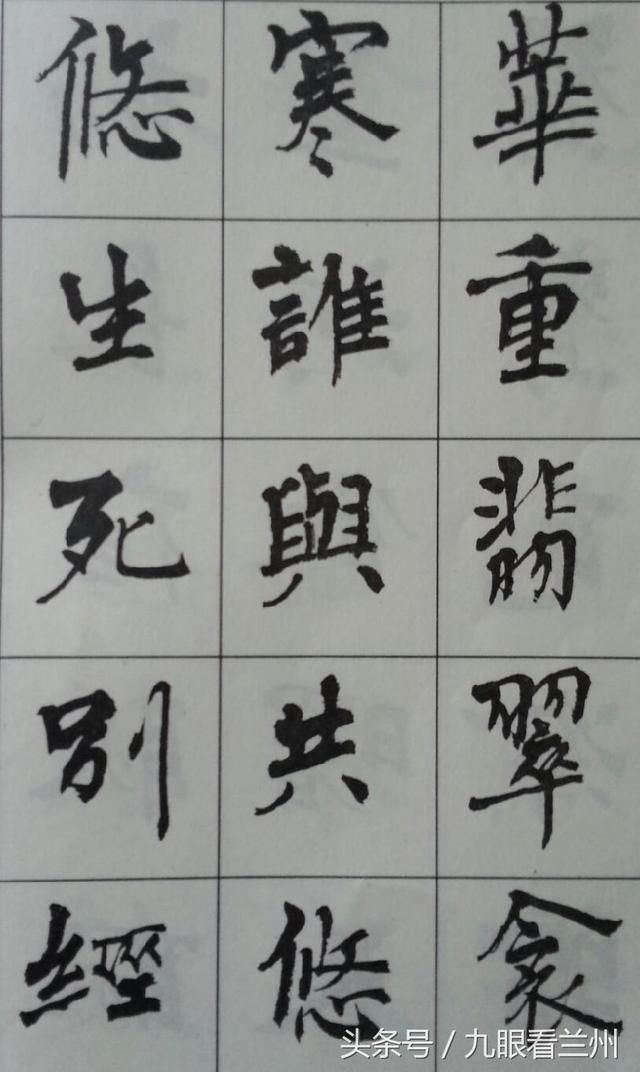 華重翡翠衾
寒誰與共悠
悠生死別經
头条号／九眼看兰州